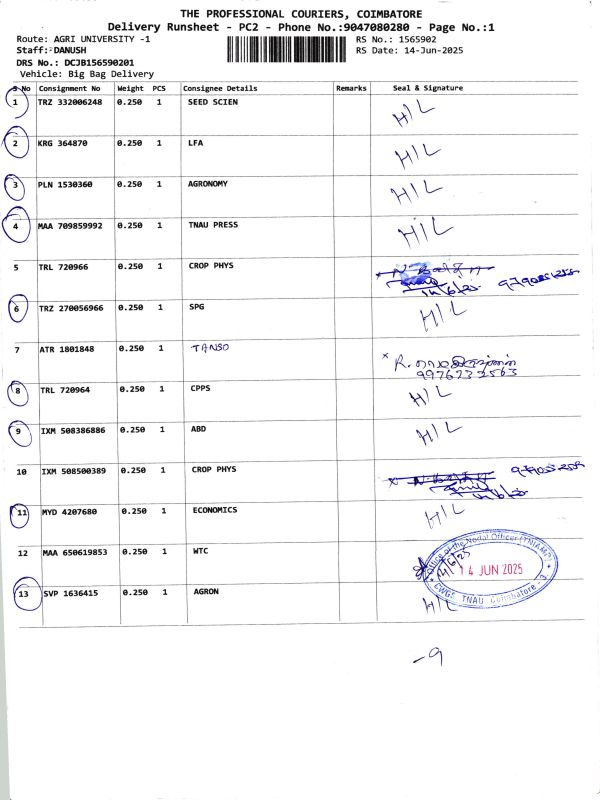 THE PROFESSIONAL COURIERS, COIMBATORE
Delivery Runsheet - PC2 - Phone No.:9047080280 - Page No.:1
Route: AGRI UNIVERSITY -1
RS No.: 1565902
Staff: DANUSH
RS Date: 14-Jun-2025
DRS No.: DCJB156590201
Vehicle: Big Bag Delivery
S No Consignment No Weight PCS Consignee Details Remarks Seal & Signature
1 TRZ 332006248 0.250 1 SEED SCIEN H/L
2 KRG 364870 0.250 1 LFA H/L
3 PLN 1530360 0.250 1 AGRONOMY H/L
4 MAA 709859992 0.250 1 TNAU PRESS H/L
5 TRL 720966 0.250 1 CROP PHYS
14/6/25
6 TRZ 270056966 0.250 1 SPG H/L
7 ATR 1801848 0.250 1 TANSO
x R.
9976732563
8 TRL 720964 0.250 1 CPPS H/L
9 IXM 508386886 0.250 1 ABD H/L
10 IXM 508500389 0.250 1 CROP PHYS
14/6/25
11 MYD 4207680 0.250 1 ECONOMICS H/L
12 MAA 650619853 0.250 1 WTC
Office of the Nodal Officer (TNIAMP)
14/6/25
14 JUN 2025
CWGS, TNAU, Coimbatore - 3
13 SVP 1636415 0.250 1 AGRON H/L
-9